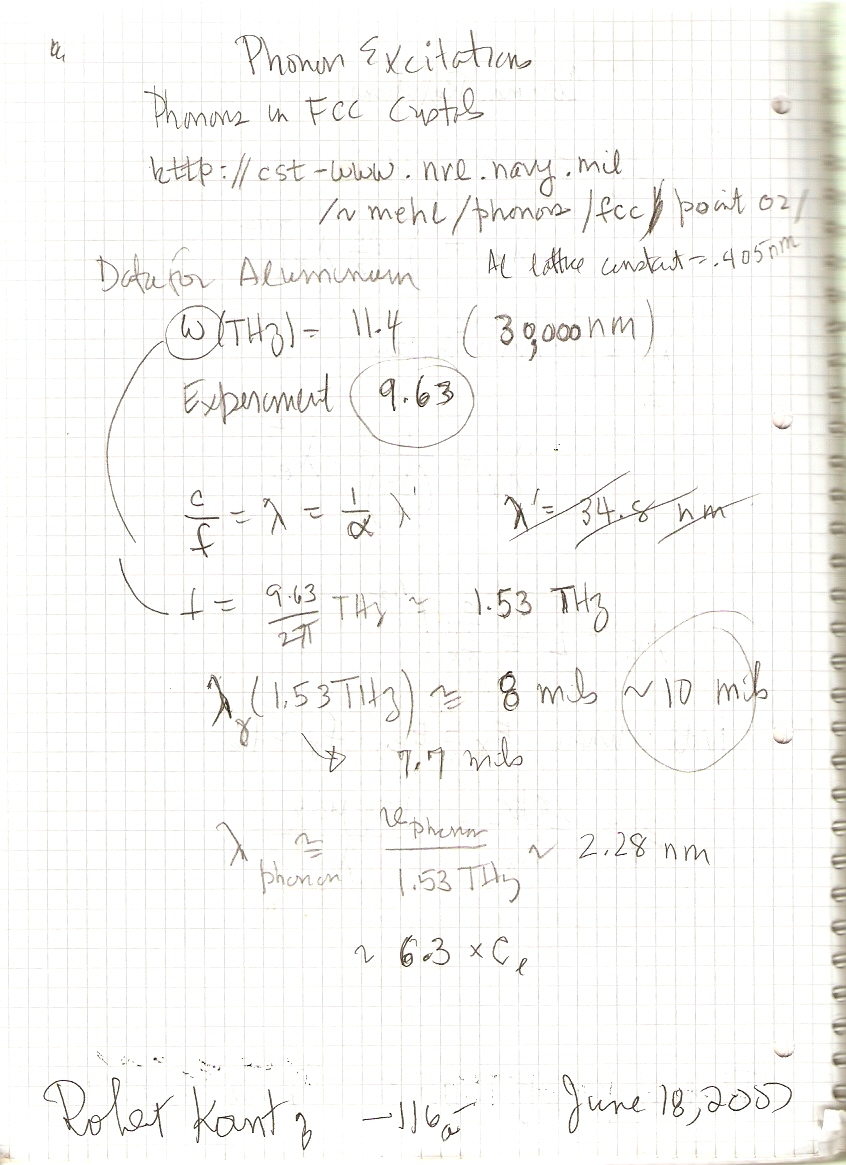 Phonon Excitations
Phonons in FCC Crystals
http://cst-www.nrl.navy.mil
/~mehl/phonons/fcc/point02/
Al lattice constant = .405nm
Data for Aluminum
ω(THz) = 11.4 (30,000nm)
Experiment 9.63
c/f = λ = 1/α λ' λ' = 34.8 nm
f = 9.63/2π THz ≈ 1.53 THz
λγ(1.53THz) ≅ 8 mils ~10 mils
↳ 7.7 mils
λphonon ≅ vphonon/1.53 THz ~ 2.28 nm
~ 6.3 × Cℓ
Robert Kantz -116a- June 18, 200